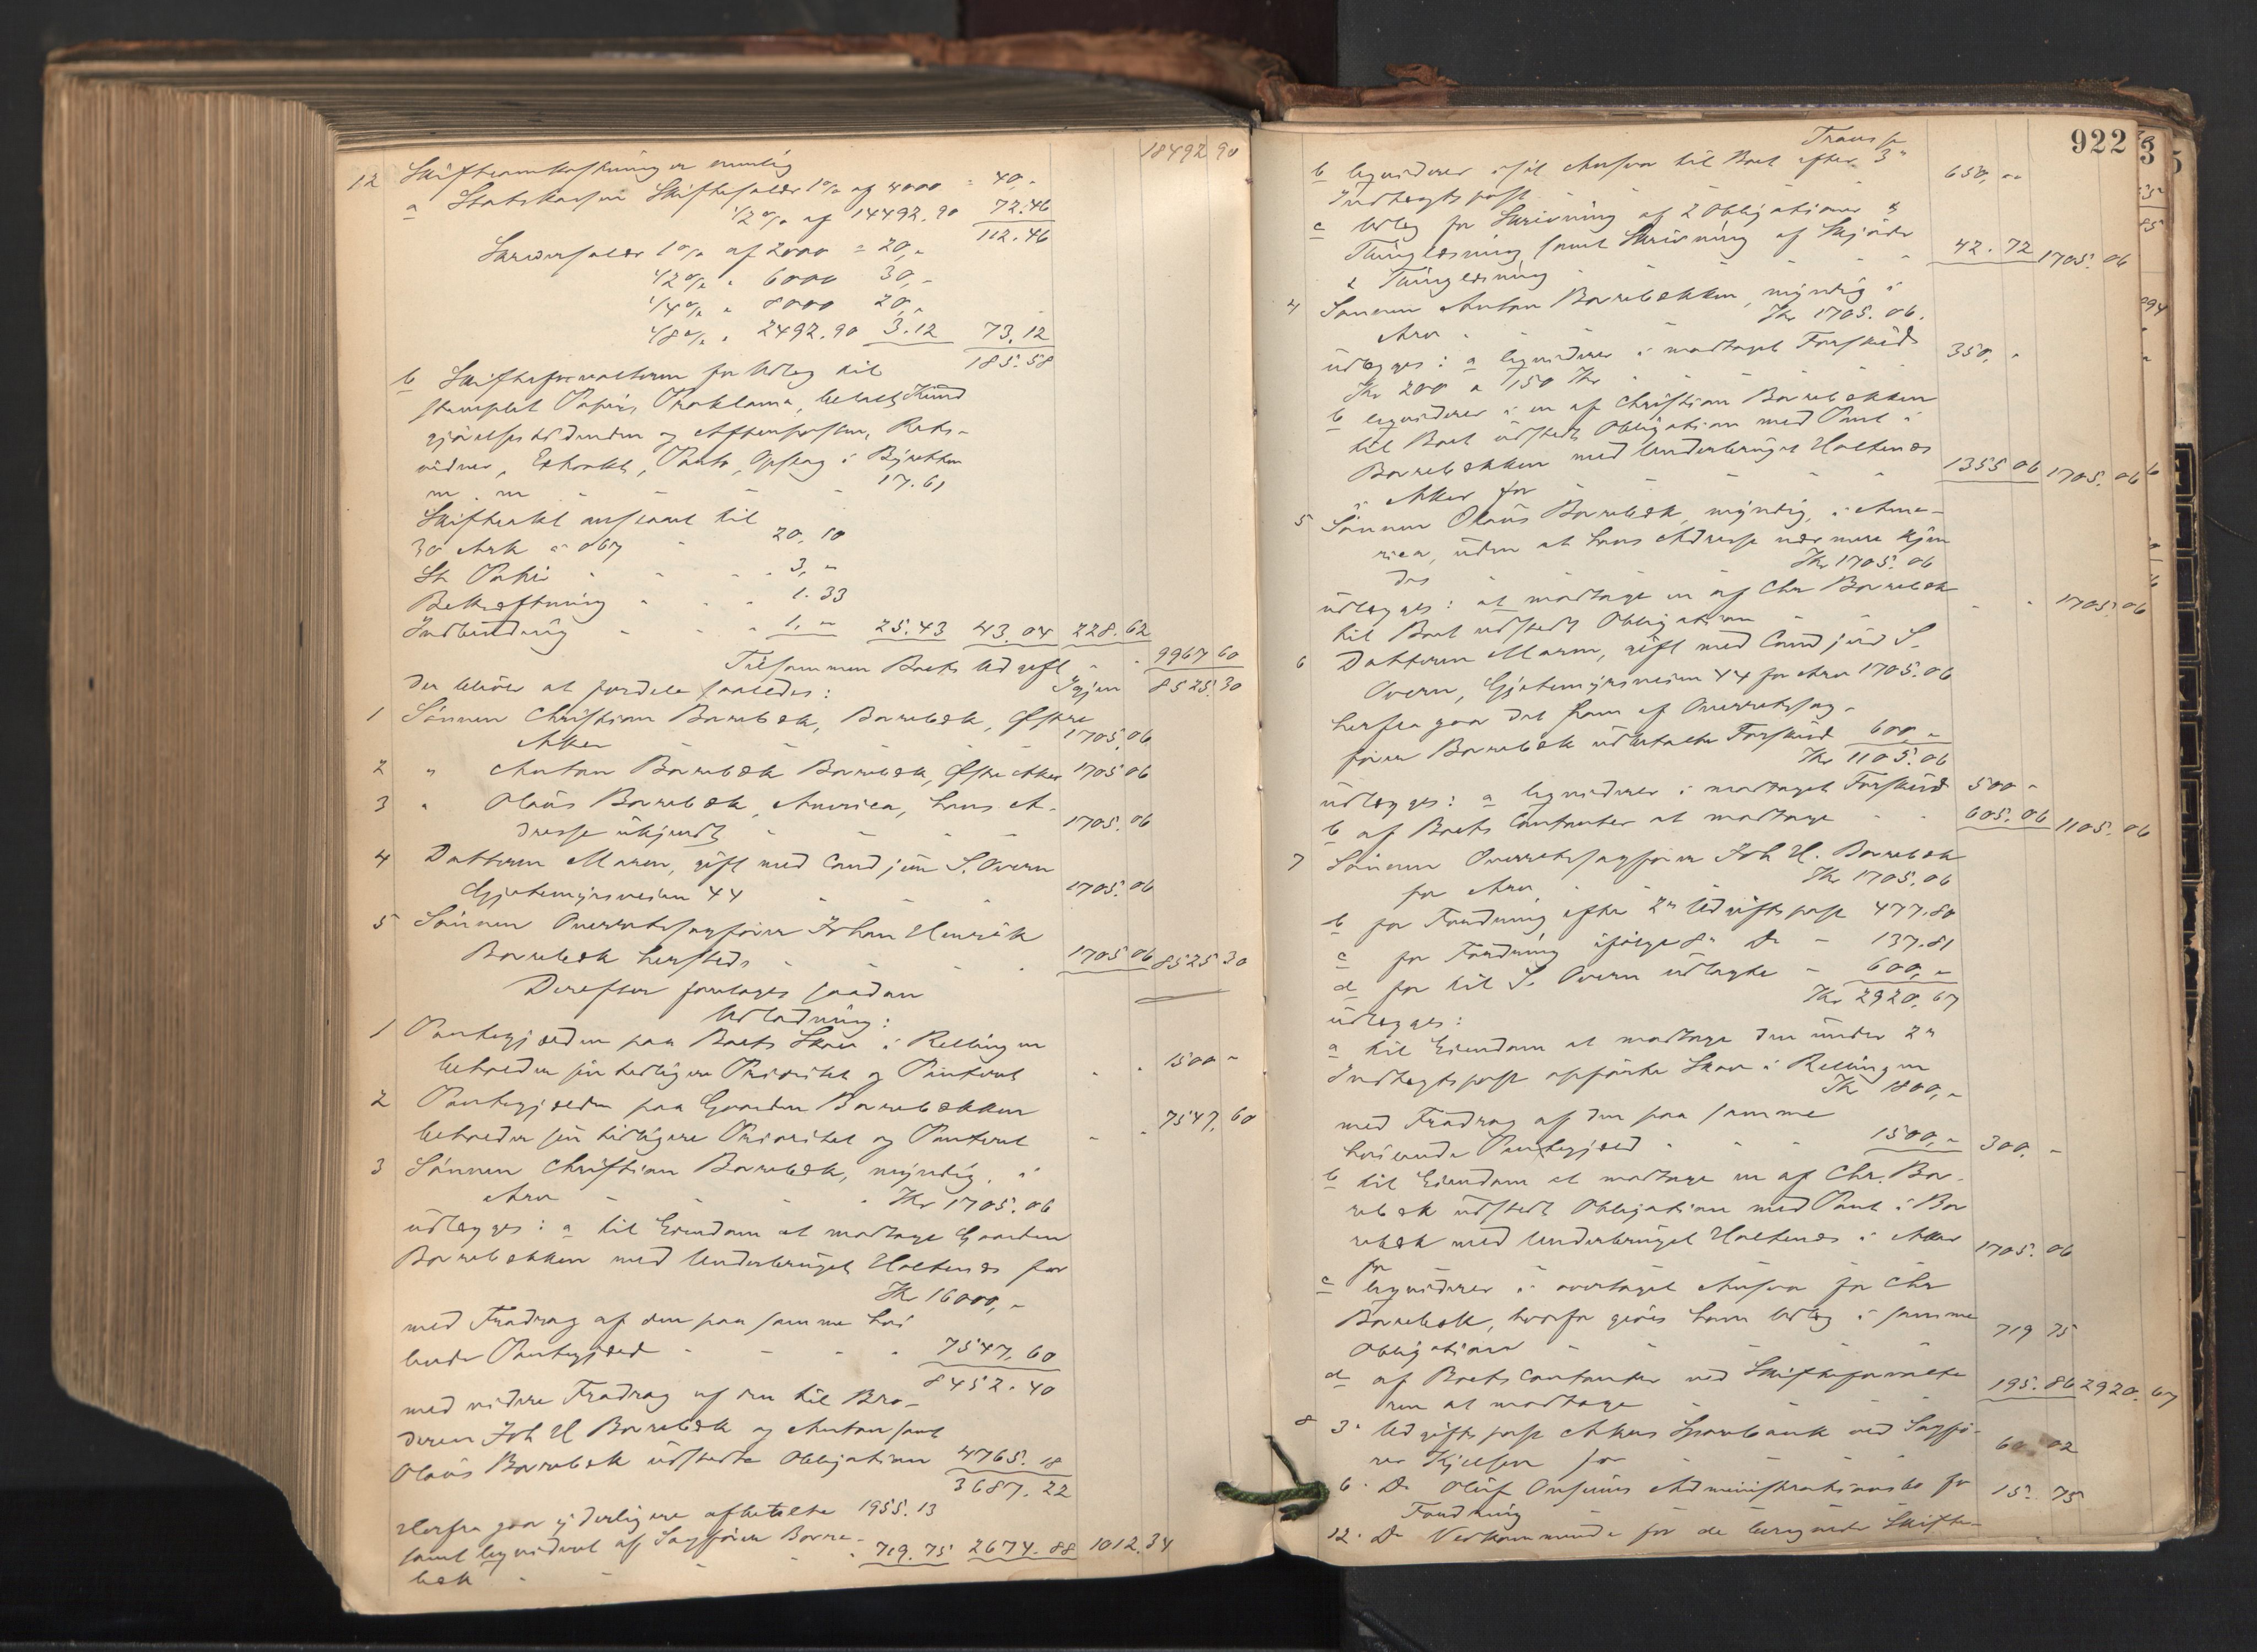 18492 90
12 Skifteomkostninger nemlig
a Statskassen Skiftesalær 1% af 4000 = 40,-
1/2 % af 14492.90 72.46
112.46
Skriversalær 1% af 2000 = 20,-
1/2 % " 6000 30,-
1/4 % " 8000 20,-
1/8 % " 2492.90 3.12 73.12
185.58
b Skifteforvalteren for Udlæg til
stemplet Papir, Proklama, betalt Kund
gjørelsestidenden og Aftenposten, Rets-
vidner, Extrakt, Porto, Opslag i Byretten
m. m. - - - 17.61
Skifteakt anslaaet til
30 Ark a 067 - 20.10
St Papir - - - 3,-
Bekræftning - - - 1.33
Indbinding - - - 1,- 25.43 43.04 228.62
Tilsammen Boets Udgift - - 9967 60
Igjen 8525.30
der bliver at fordele saaledes:
1 Sønnen Christian Borrebæk, Borrebæk, Østre
Aker - - - 1705.06
2 " Anton Borrebæk Borrebæk, Østre Aker 1705 06
3 " Olaus Borrebæk, America, hans A-
dresse ukjendt - - - 1705.06
4 Datteren Maren, gift med Cand jur S. Overn
Gjetemyrsveien 44 - - 1705.06
5 Sønnen Overretssagfører Johan Henrik
Borrebæk hersteds - - - 1705 06 8525 30
Derefter foretages saadan
Udlodning:
1 Pantegjælden paa Boets Skov i Rellingen
beholder sin tidligere Prioritet og Panteret - - 1500 -
2 Pantegjælden paa Gaarden Borrebækken
beholder sin tidligere Prioritet og Panteret - - 7547,60
3 Sønnen Christian Borrebæk, myndig, i
Arv - - - Kr 1705.06
udlægges: a til Eiendom at modtage Gaarden
Borrebækken med Underbruget Holtenæs for
Kr 16000,-
med Fradrag af den paa samme hvi
lende Pantegjæld - - - 7547,60
8452.40
med videre Fradrag af den til Bro-
deren Joh H Borrebæk og Anton samt
Olaus Borrebæk udstedte Obligation 4765.18
3687.22
Herfra gaar yderligere afbetalte 1955.13
samt likvideret af Sagfører Borre-
bæk - - - 719.75 2674.88 1012.34
922
Transp
b likviderer i sit Ansvar til Boet efter 3die
Indtægtspost - - - 650,-
c Udlæg for Skrivning af 2 Obligationer &
Thinglæsning samt Skrivning af Skjøde
& Thinglæsning - - - 42.72 1705.06
4 Sønnen Anton Borrebækken, myndig i
Arv - - - Kr 1705.06.
udlægges: a likviderer i modtaget Forskud
Kr 200 & 150 Kr - - - 350,-
b likviderer i en af Christian Borrebækken
til Boet udstedt Obligation med Pant i
Borrebækken med Underbruget Holtenæs
i Aker for - - - 1355 06 1705.06
5 Sønnen Olaus Borrebæk, myndig, i Ame-
rica, uden at hans Adresse nærmere kjen
des - Kr 1705.06
udlægges: at modtage en af Chr Borrebæk
til Boet udstedt Obligation - - - 1705.06
6 Datteren Maren, gift med Cand jur S.
Overn, Gjetemyrsveien 44 for Arv 1705.06
herfra gaar det ham af Overretssag-
fører Borrebæk udbetalte Forskud 600,-
Kr 1105.06
udlægges: a likviderer i modtaget Forskud 500 -
b af Boets Contanter at modtage - - 605.06 1105.06
7 Sønnen Overretssagfører Joh H. Borrebæk
for Arv - - Kr 1705.06
b for Fordring efter 2den Udgiftspost 477.80
c for Fordring ifølge 8de Do - 137.81
d for til S. Overn udlagte - 600,-
Kr 2920.67
udlægges:
a til Eiendom at modtage den under 2den
Indtægtspost opførte Skov i Rellingen
Kr 1800,-
med Fradrag af den paa samme
hvilende Pantegjæld - - 1500,- 300.-
b til Eiendom at modtage en af Chr. Bor-
rebæk udstedt Obligation med Pant i Bor
rebæk med Underbruget Holtenæs i Aker
for 1705.06
c likviderer i overtaget Ansvar for Chr
Borrebæk, hvorfor gives ham Udlæg i samme
Obligation - - - 719 75
d af Boets Contanter ved Skifteforvalte
ren at modtage - - - 195.86 2920.67
8 3. Udgifts post Akers Sparebank ved Sagfø-
rer Kjelsen for - - - 60 02
6. Do Oluf Onsums Administrationsbo for
Fordring - - - 15.75
12. Do Vedkommende for de beregnede Skifte-